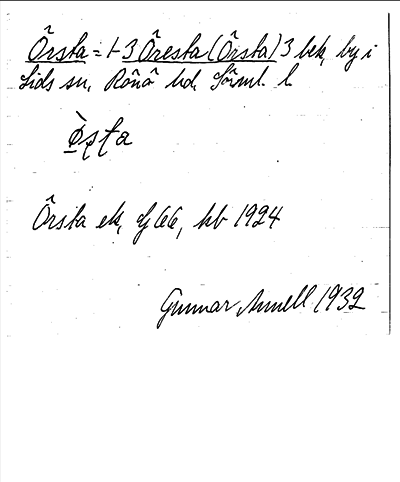 Örsta = 1-3 Öresta (Örsta) 3 bek, by i
Lids sn, Rönö hd. Sörml. l.
Örsta ek, gj 66, kb 1924
Gunnar Annell 1932